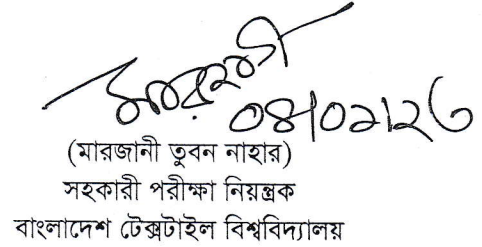 ০৪/০৯/২৩
(মারজানী তুবন নাহার)
সহকারী পরীক্ষা নিয়ন্ত্রক
বাংলাদেশ টেক্সটাইল বিশ্ববিদ্যালয়